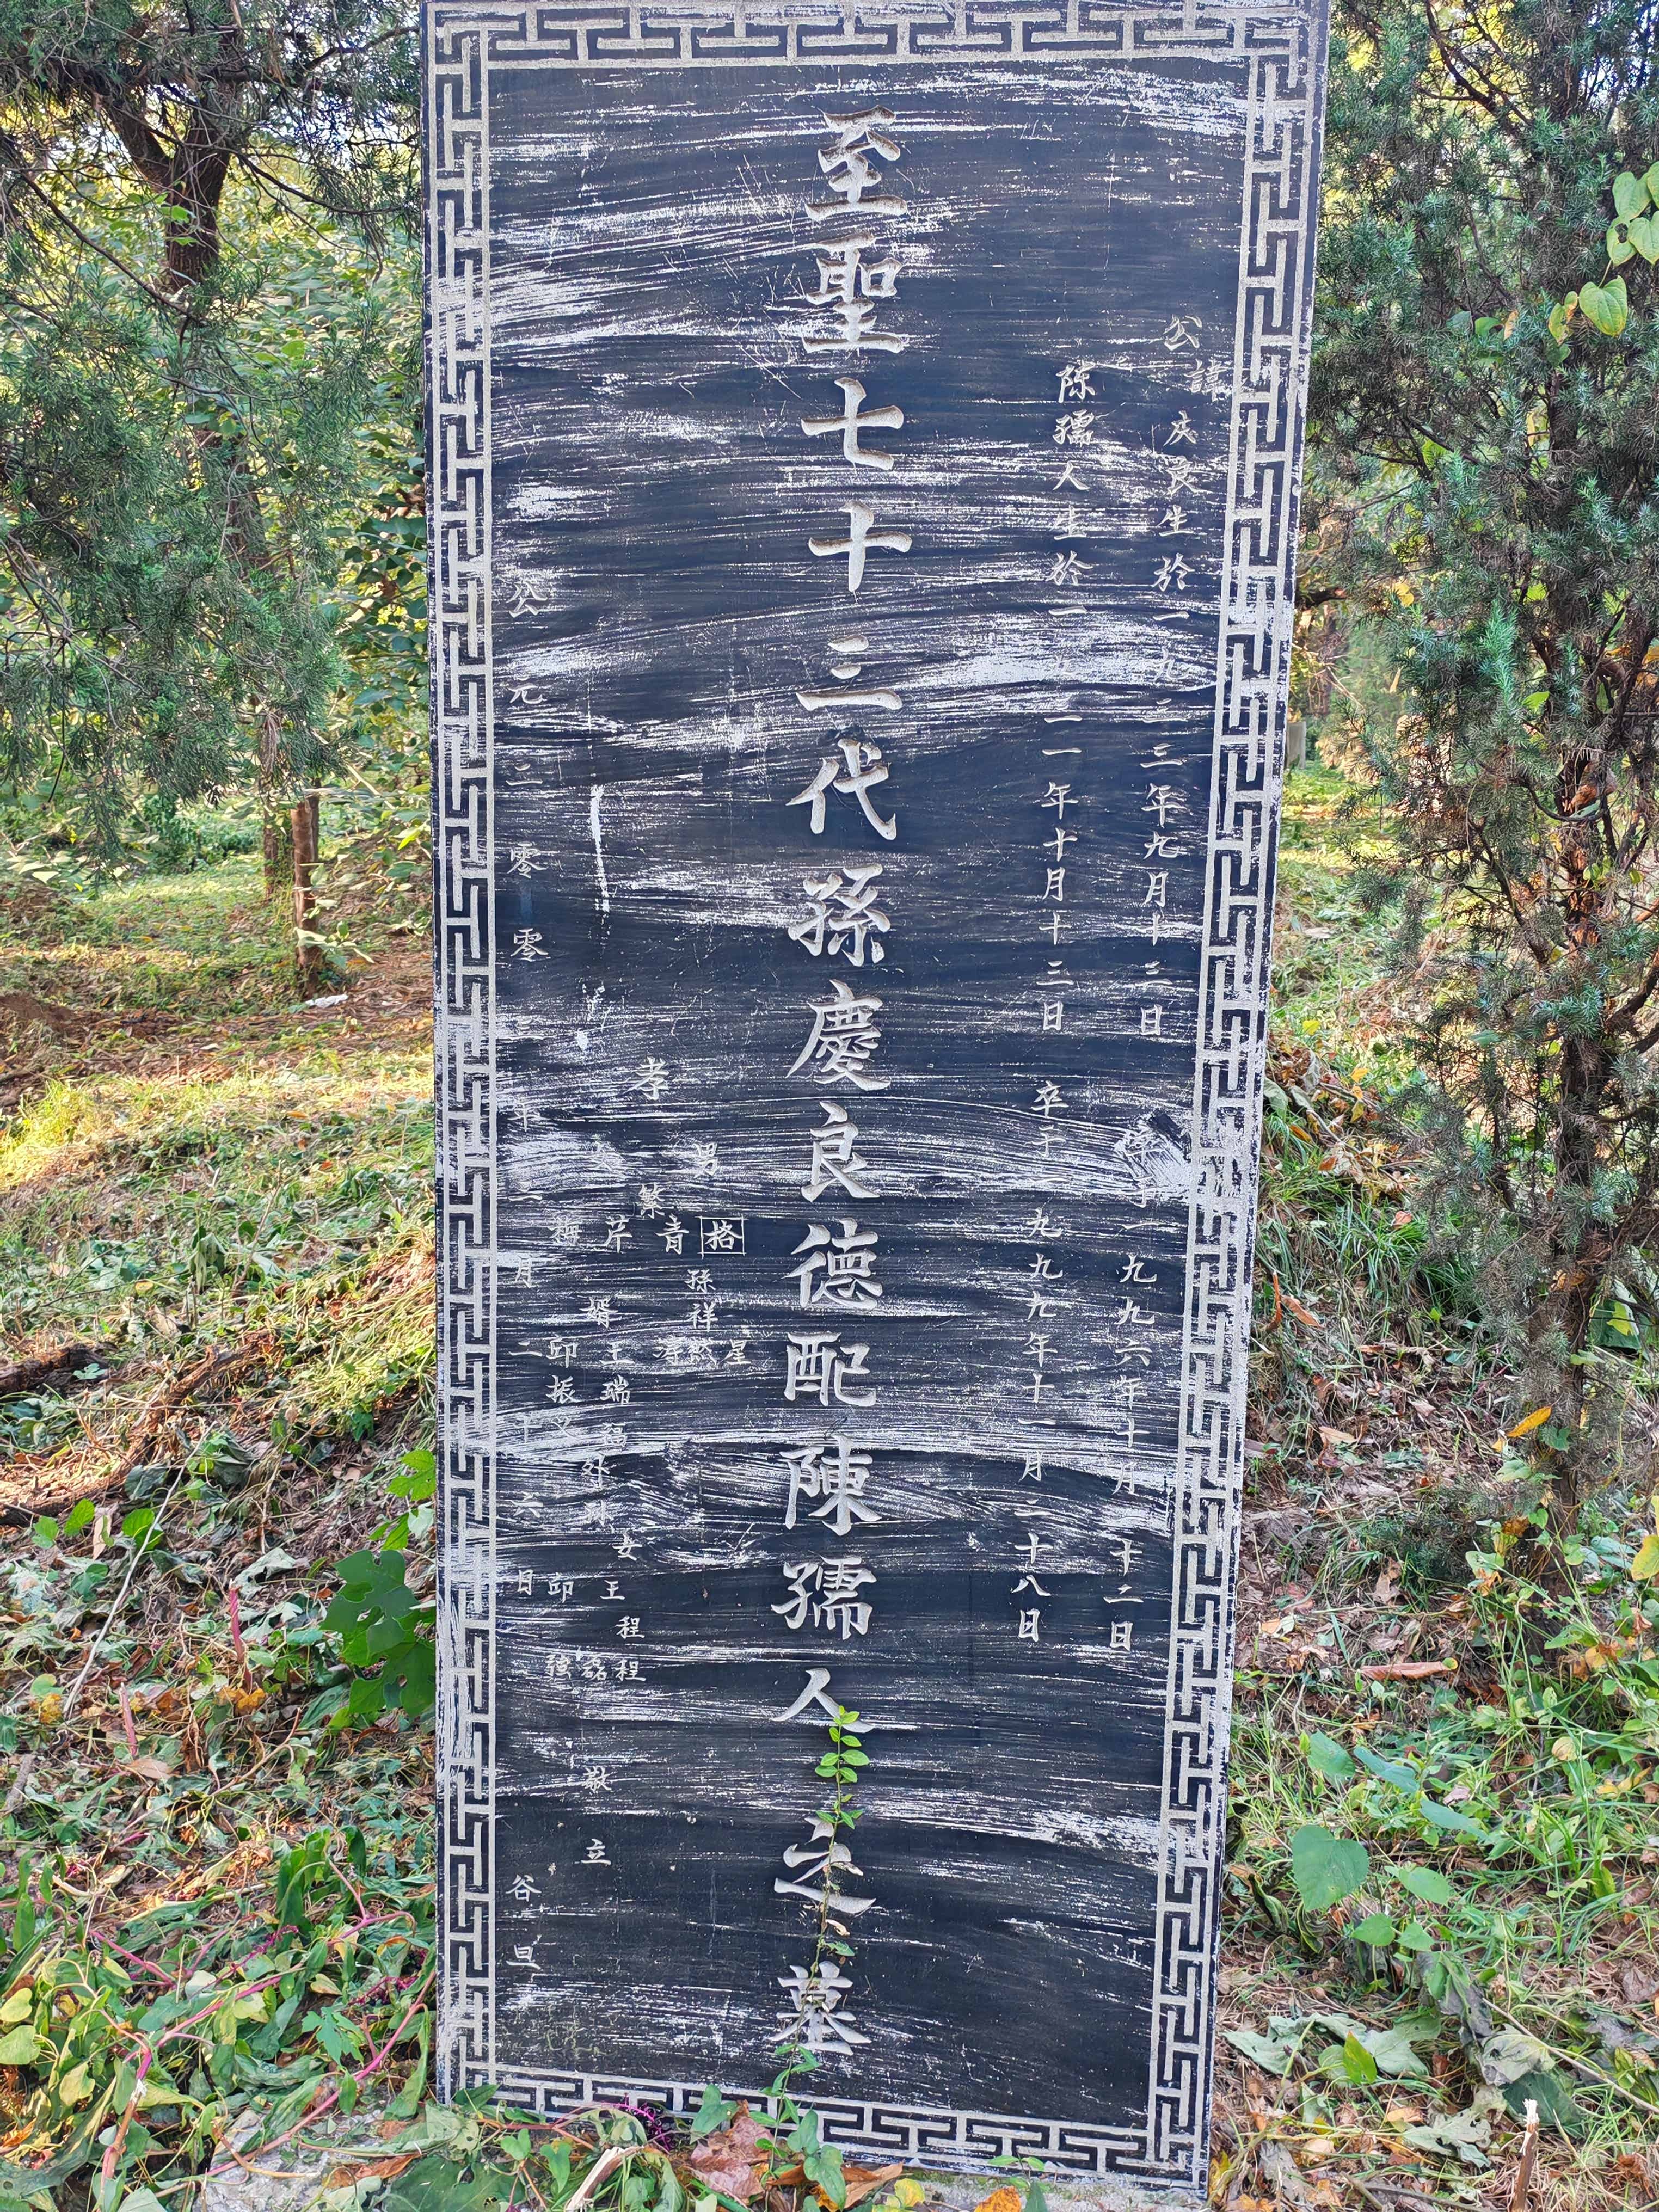 公諱庆良生於一九二三年九月十二日 卒于一九九六年十月十二日
陈孺人生於一九一一年十月十三日 卒于一九九九年十一月二十八日
至聖七十三代孫慶良德配陳孺人之墓
孝
男
繁
青
芹
梅
孫
祥
星
婿
王瑞
印振
外
女
王
印
程
程
磊
强
敬立
公元二零零 年 月二十六日 谷旦